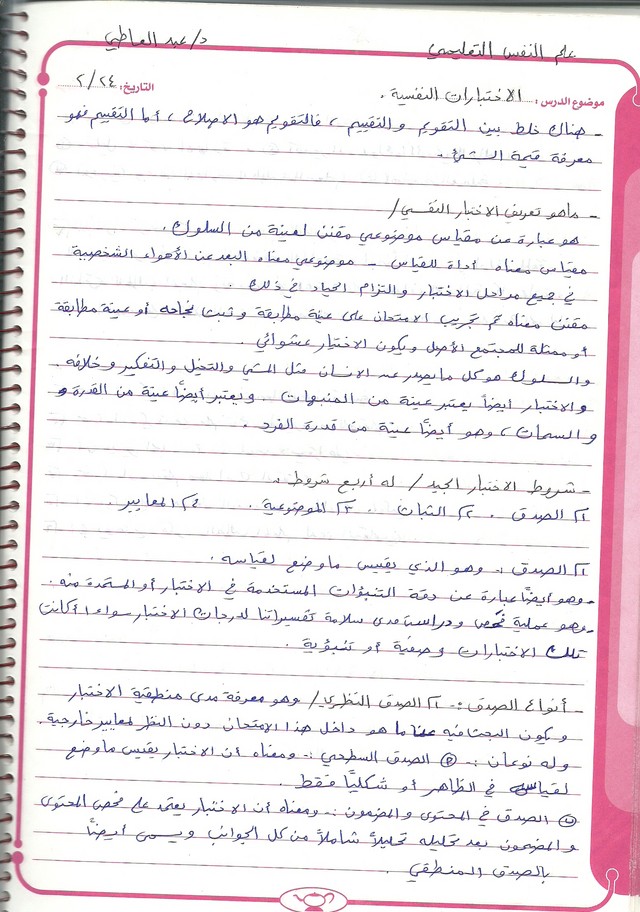 علم النفس التعليمي د/عبد العاطي
موضوع الدرس : الاختبارات النفسية . التاريخ: ٢/٢٤
- هناك خلط بين التقويم والتقييم ، فالتقويم هو الاصلاح ، أما التقييم فهو
معرفة قيمة الشئ .
- ماهو تعريف الاختبار النفسي /
هو عبارة عن مقياس موضوعي مقنن لعينة من السلوك .
مقياس معناه أداة للقياس - موضوعي معناه البعد عن الأهواء الشخصية
في جميع مراحل الاختبار والتزام الحياد في ذلك .
مقنن معناه تم تجريب الامتحان على عينة مطابقة وثبت نجاحه أو عينة مطابقة
أو ممثلة للمجتمع الأصل ويكون الاختيار عشوائي .
والسلوك هو كل ما يصدر عن الانسان مثل المشي والتخيل والتفكير وخلافه .
والاختبار أيضاً يعتبر عينة من المنبهات . ويعتبر أيضاً عينة من القدرة و
والسمات ، وهو أيضاً عينة من قدرة الفرد .
- شروط الاختبار الجيد / له أربع شروط :
١) الصدق . ٢) الثبات . ٣) الموضوعية . ٤) المعايير .
١) الصدق : وهو الذي يقيس ما وضع لقياسه .
- وهو أيضاً عبارة عن دقة التنبؤات المستخدمة في الاختبار أو المستمدة منه .
- وهو عملية فحص ودراسة مدى سلامة تفسيراتنا لدرجات الاختبار سواء أكانت
تلك الاختبارات وصفية أو تنبؤية .
- أنواع الصدق :- ١) الصدق النظري / وهو معرفة مدى منطقية الاختبار
ويكون البحث فيه عما هو داخل هذا الامتحان دون النظر لمعايير خارجية .
وله نوعان :- (أ) الصدق السطحي :- ومعناه أن الاختبار يقيس ما وضع
لقياسه في الظاهر أو شكلياً فقط .
(ب) الصدق في المحتوى والمضمون :- ومعناه أن الاختبار يعتمد على فحص المحتوى
والمضمون بعد تحليله تحليلاً شاملاً من كل الجوانب ويسمى أيضاً
بالصدق المنطقي .